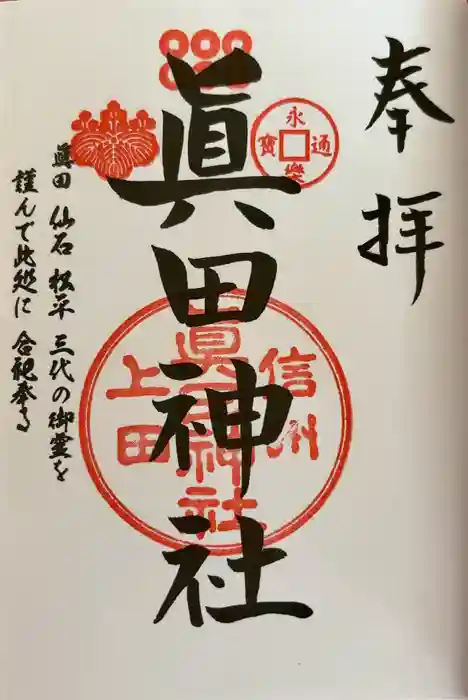 奉拝
眞田神社
永樂通寳
信州
眞田神社
上田
眞田 仙石 松平 三代の御霊を
謹んで此処に 合祀奉る